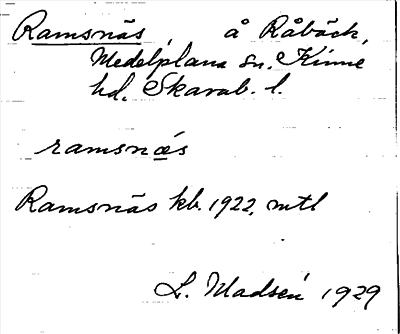 Ramsnäs, å Råbäck,
Medelplana sn. Kinne
hd, Skarab. l.
ramsnæs
Ramsnäs kb. 1922, mtl
L. Madsén 1929